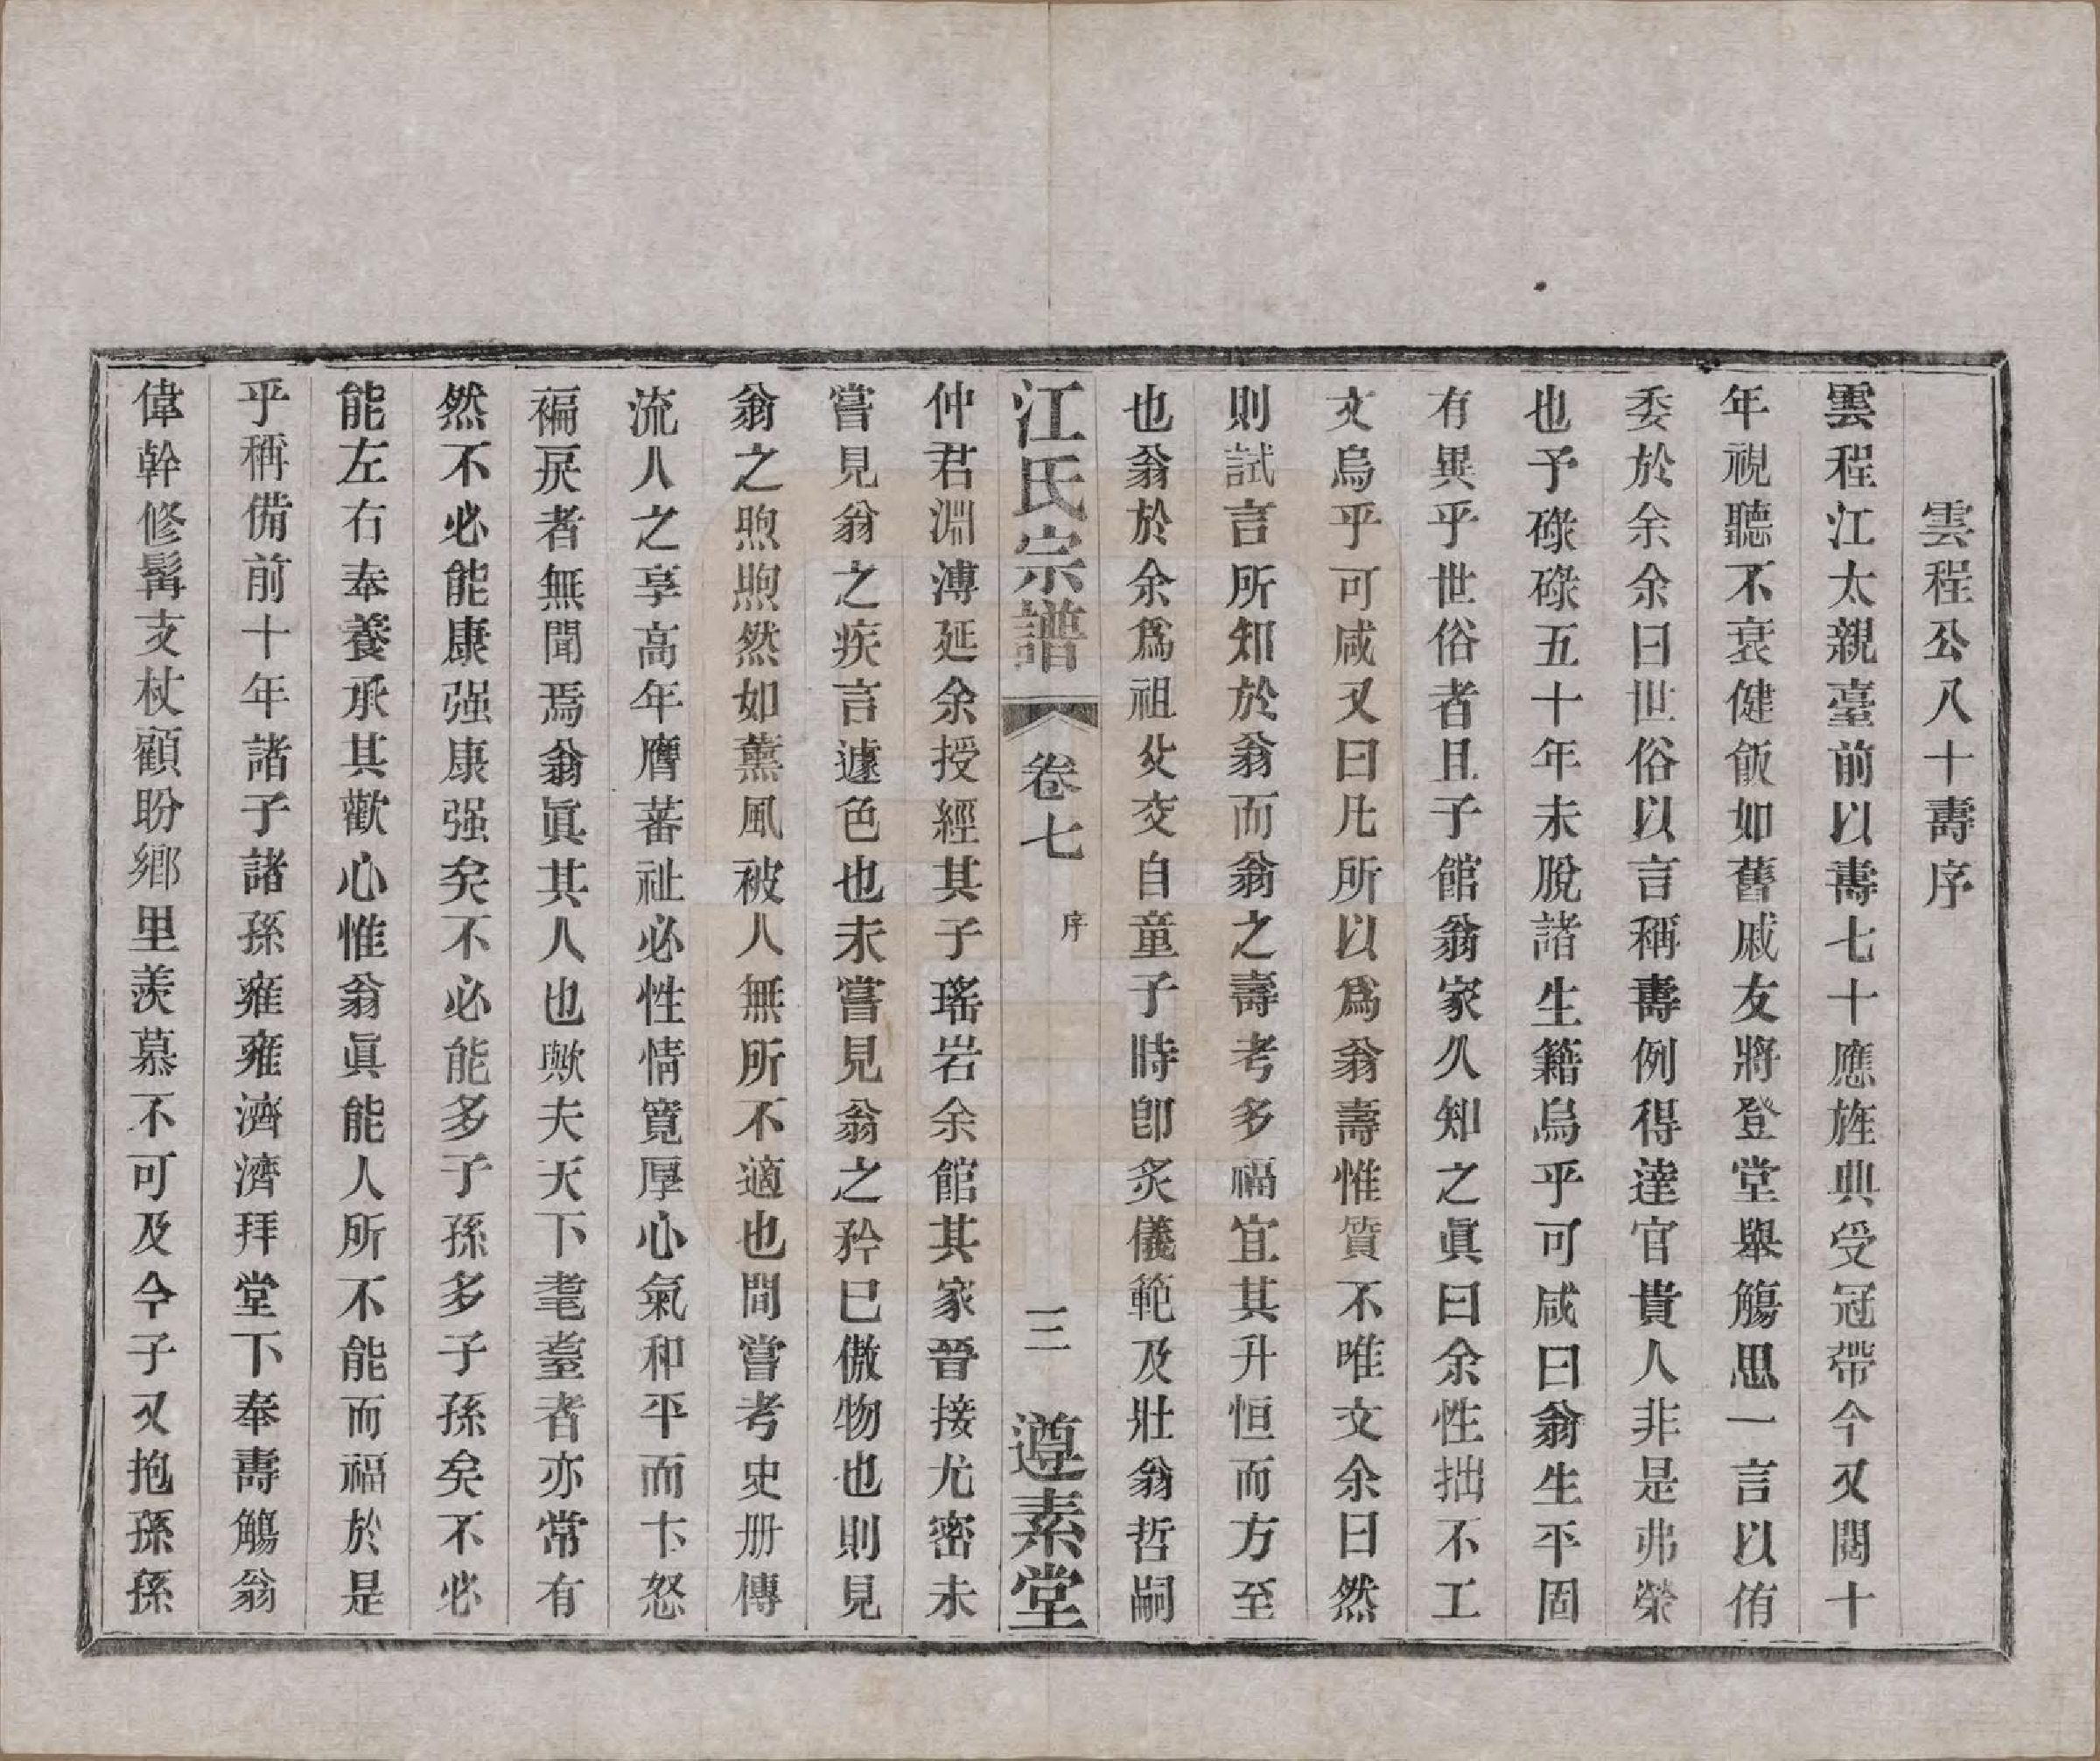 雲程公八十壽序
雲程江太親臺前以壽七十應旌典受冠帶今又閱十
年視聽不衰健飯如舊戚友將登堂舉觴思一言以侑
委於余余曰世俗以言稱壽例得達官貴人非是弗榮
也予碌碌五十年未脫諸生籍烏乎可咸曰翁生平固
有異乎世俗者且子館翁家久知之眞曰余性拙不工
文烏乎可咸又曰凡所以爲翁壽惟質不唯文余曰然
則試言所知於翁而翁之壽考多福宜其升恒而方至
也翁於余爲祖父交自童子時卽炙儀範及壯翁哲嗣
江氏宗譜 卷七 序 三 遵素堂
仲君淵溥延余授經其子瑤岩余館其家晉接尤密未
嘗見翁之疾言遽色也未嘗見翁之矜已傲物也則見
翁之煦煦然如薰風被人無所不適也間嘗考史册傳
流人之享高年膺蕃祉必性情寬厚心氣和平而卞怒
褊戾者無聞焉翁眞其人也歟夫天下耄耋者亦常有
然不必能康强康强矣不必能多子孫多子孫矣不必
能左右奉養承其歡心惟翁眞能人所不能而福於是
乎稱備前十年諸子諸孫雍雍濟濟拜堂下奉壽觴翁
偉幹修髯支杖顧盼鄉里羨慕不可及今子又抱孫孫